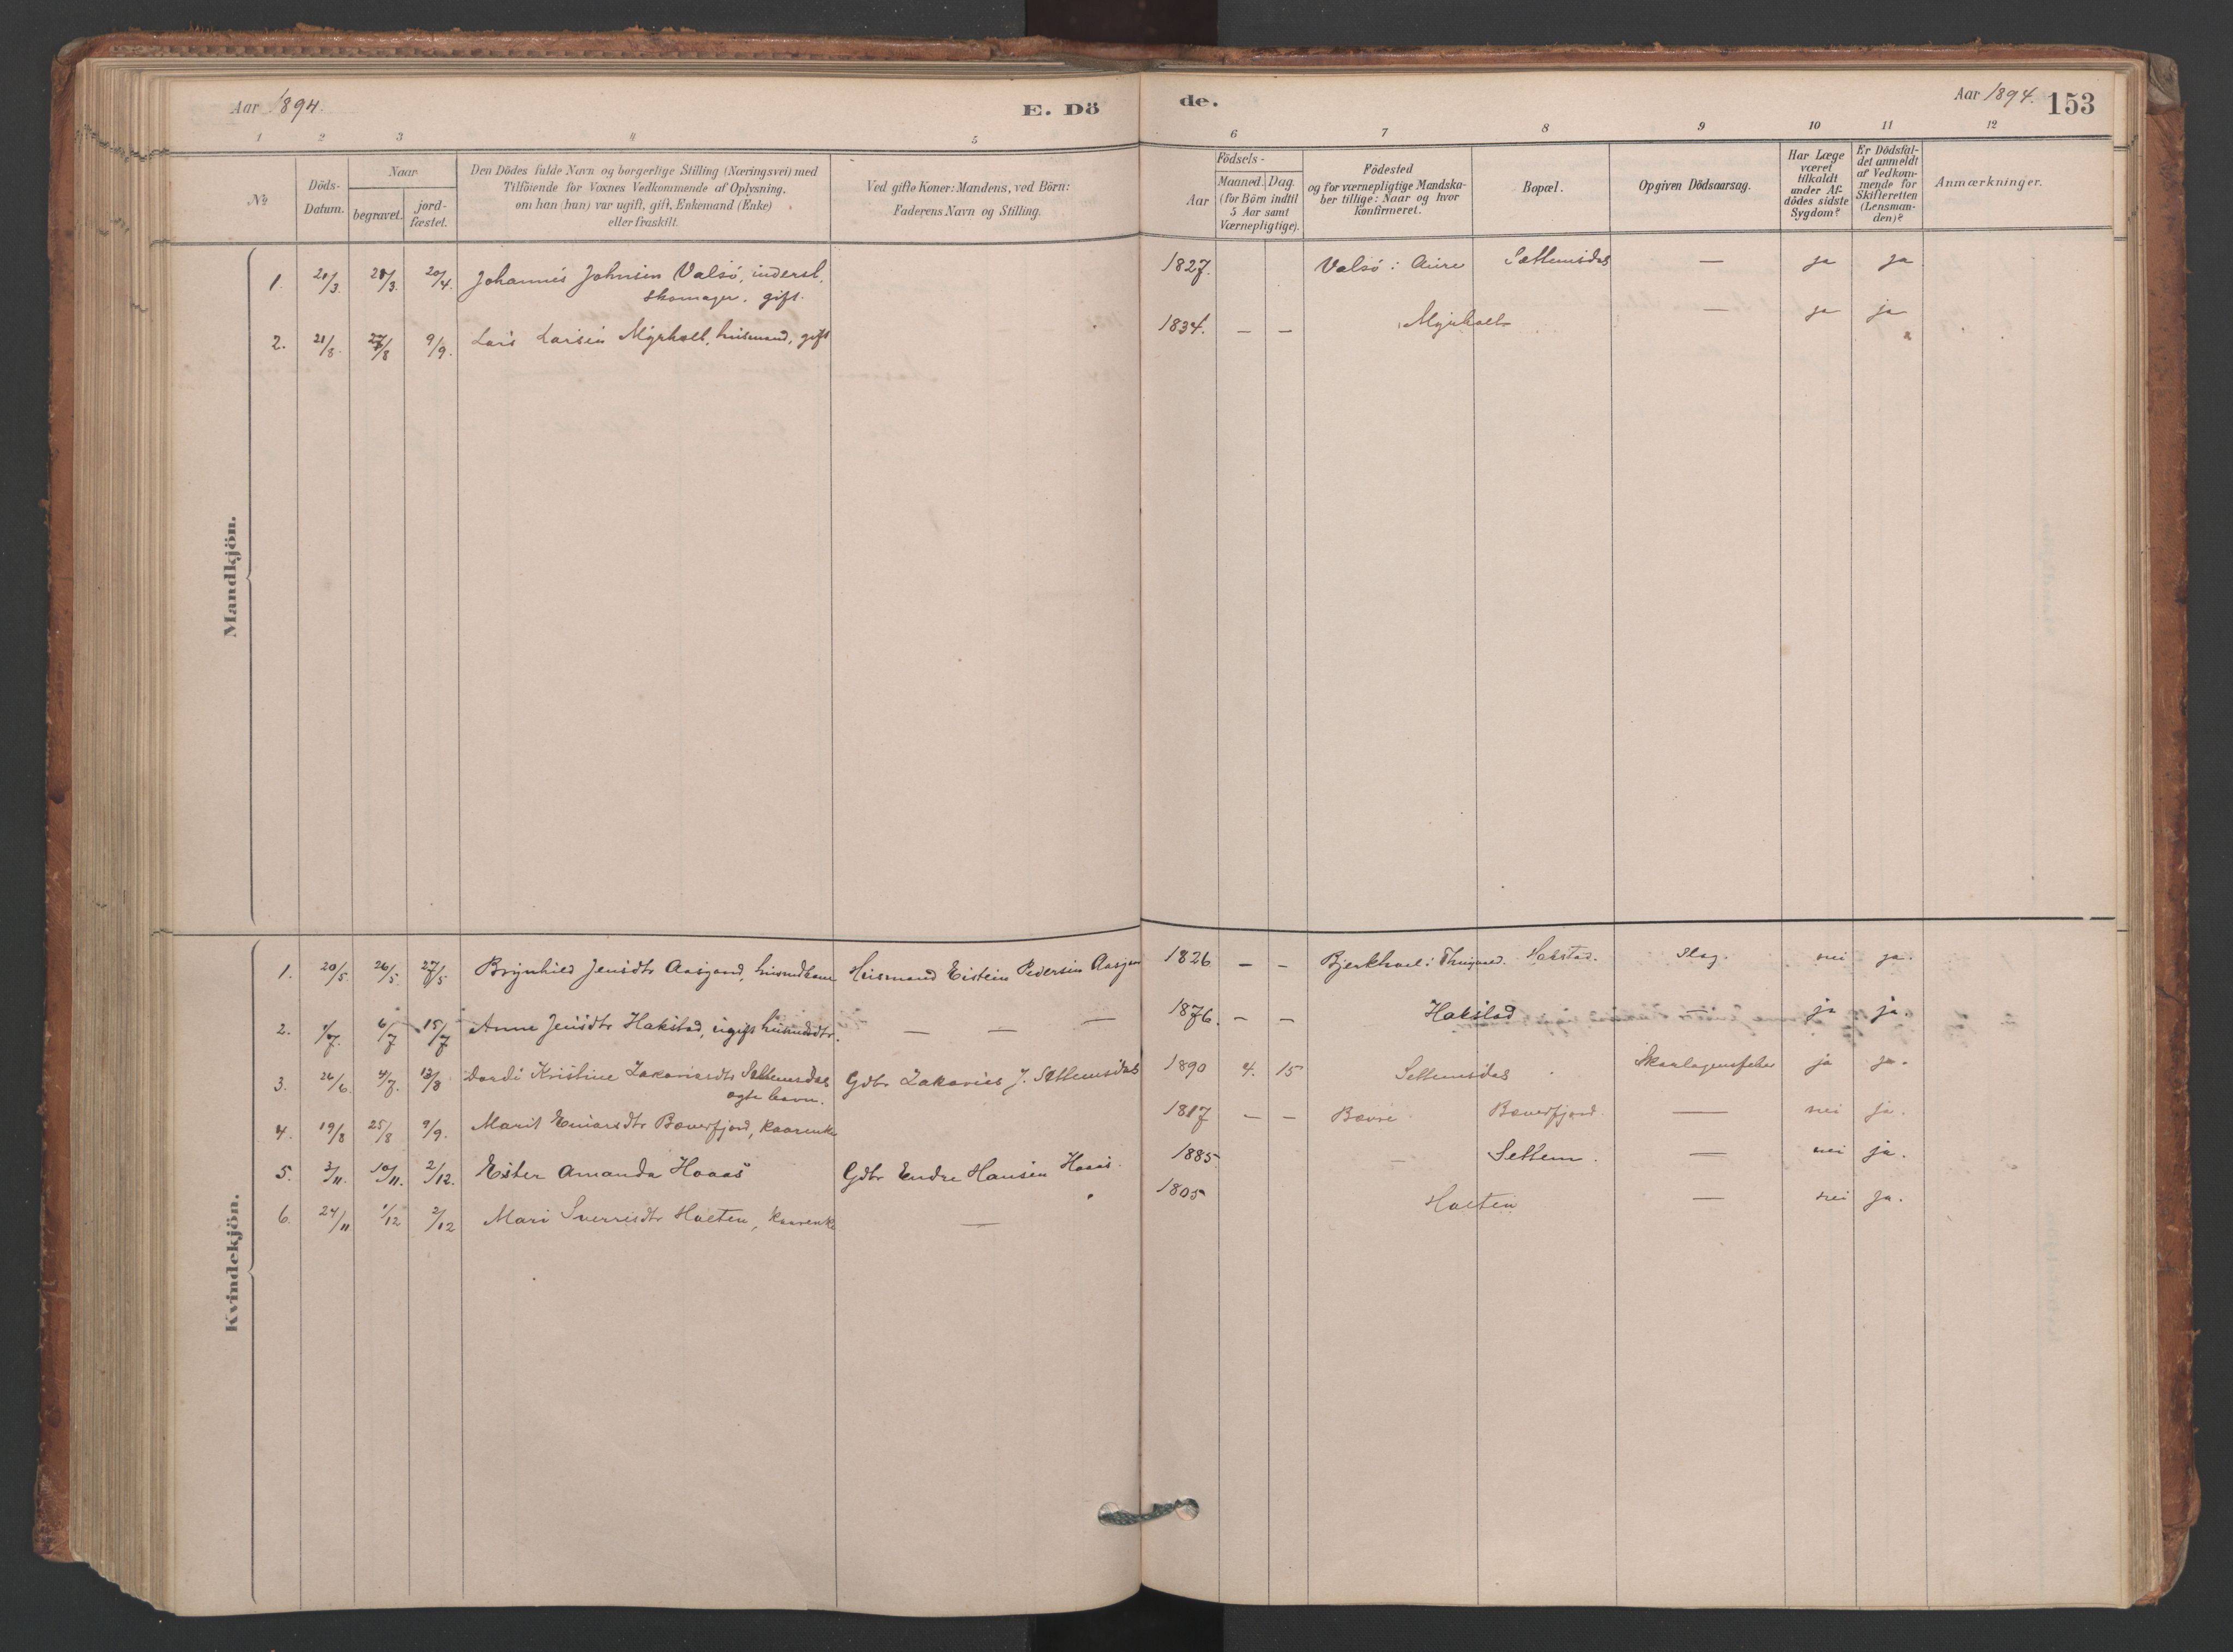 Aar 1894.
E. Dö
de.
Aar 1894.
153
1 2 3 4 5 6 7 8 9 10 11 12
No
Döds-
Datum.
Naar
begravet.
jord-
fæstet.
Den Dödes fulde Navn og borgerlige Stilling (Næringsvei) med
Tilföiende for Voxnes Vedkommende af Oplysning,
om han (hun) var ugift, gift, Enkemand (Enke)
eller fraskilt.
Ved gifte Koner: Mandens, ved Börn:
Faderens Navn og Stilling.
Födsels-
Aar
Maaned.
Dag
(for Börn indtil
5 Aar samt
Værnepligtige).
Födested
og for værnepligtige Mandska-
ber tillige: Naar og hvor
konfirmeret.
Bopæl.
Opgiven Dödsaarsag.
Har Læge
været
tilkaldt
under Af-
dödes sidste
Sygdom?
Er Dödsfal-
det anmeldt
af Vedkom-
mende for
Skifteretten
(Lensman-
den)?
Anmærkninger.
Mandkjön.
1. 21/3. 28/3. 20/4. Johannes Johnsen Valsö, inderst, 1827. Valsö i Aure Settemsdal — ja ja
skomager, gift.
2. 21/8. 27/8 9/9. Lars Larsen Myrholt, husmand, gift 1834. — — Myrholt — ja ja
Kvindekjön.
1. 20/5. 26/5. 27/5 Brynhild Jensdtr Aasgaard, husmdkone Husmand Eistein Pedersen 1826 — — Hakstad. Slag. nei ja.
2. 1/7. 6/7 15/7 Anne Jensdtr Hakstad, ugift husmdsdtr. — — — 1876. — — Hakstad — ja ja.
3. 26/6. 4/7. 12/8 Dordi Kristine Zakariasdtr Settemsdal Gdbr Zakarias J. Settemsdal 1890 4. 15 Settemsdal Skarlagensfeber ja ja.
ægte barn.
4. 19/8 25/8 9/9. Marit Einarsdtr Bæverfjord, kaarenke 1817 — — Bævre Bæverfjord — nei ja.
5. 3/11. 10/11. 2/12. Ester Amanda Haaas Gdbr Endre Hansen Haaas. 1885 — Settem. — nei ja.
6. 24/11 1/12 2/12 Mari Sverresdtr Holten, kaarenke — 1805 Holten — nei ja.